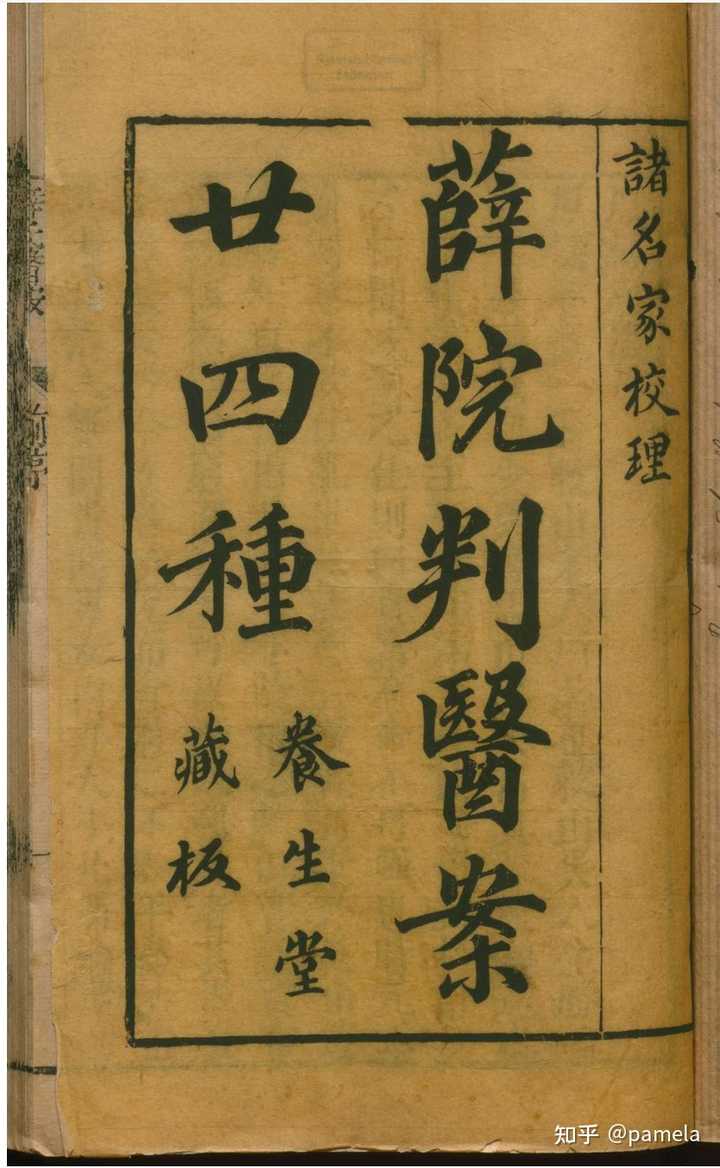 諸名家校理
薛院判醫案
廿四種
養生堂
藏板
知乎 @pamela